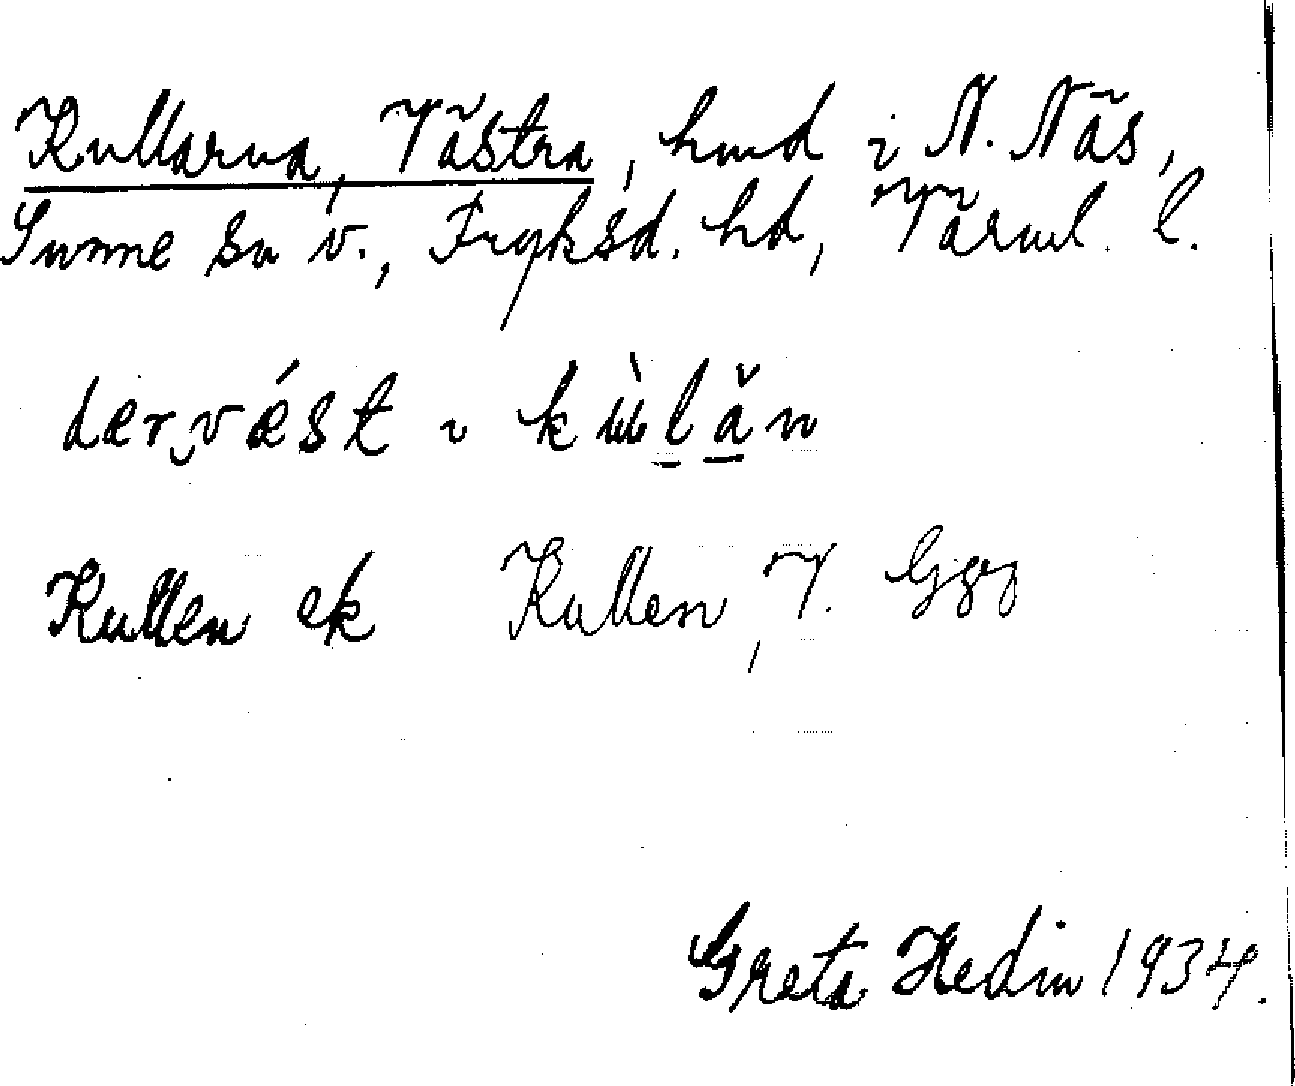 Kullarna, Västra, hmd i N. Näs,
Sunne sn v., Fryksd. hd, Värml. l.
dærvǽst i kùlăn
Kullen ek Kullen, V. Ggg
Greta Hedin 1934.